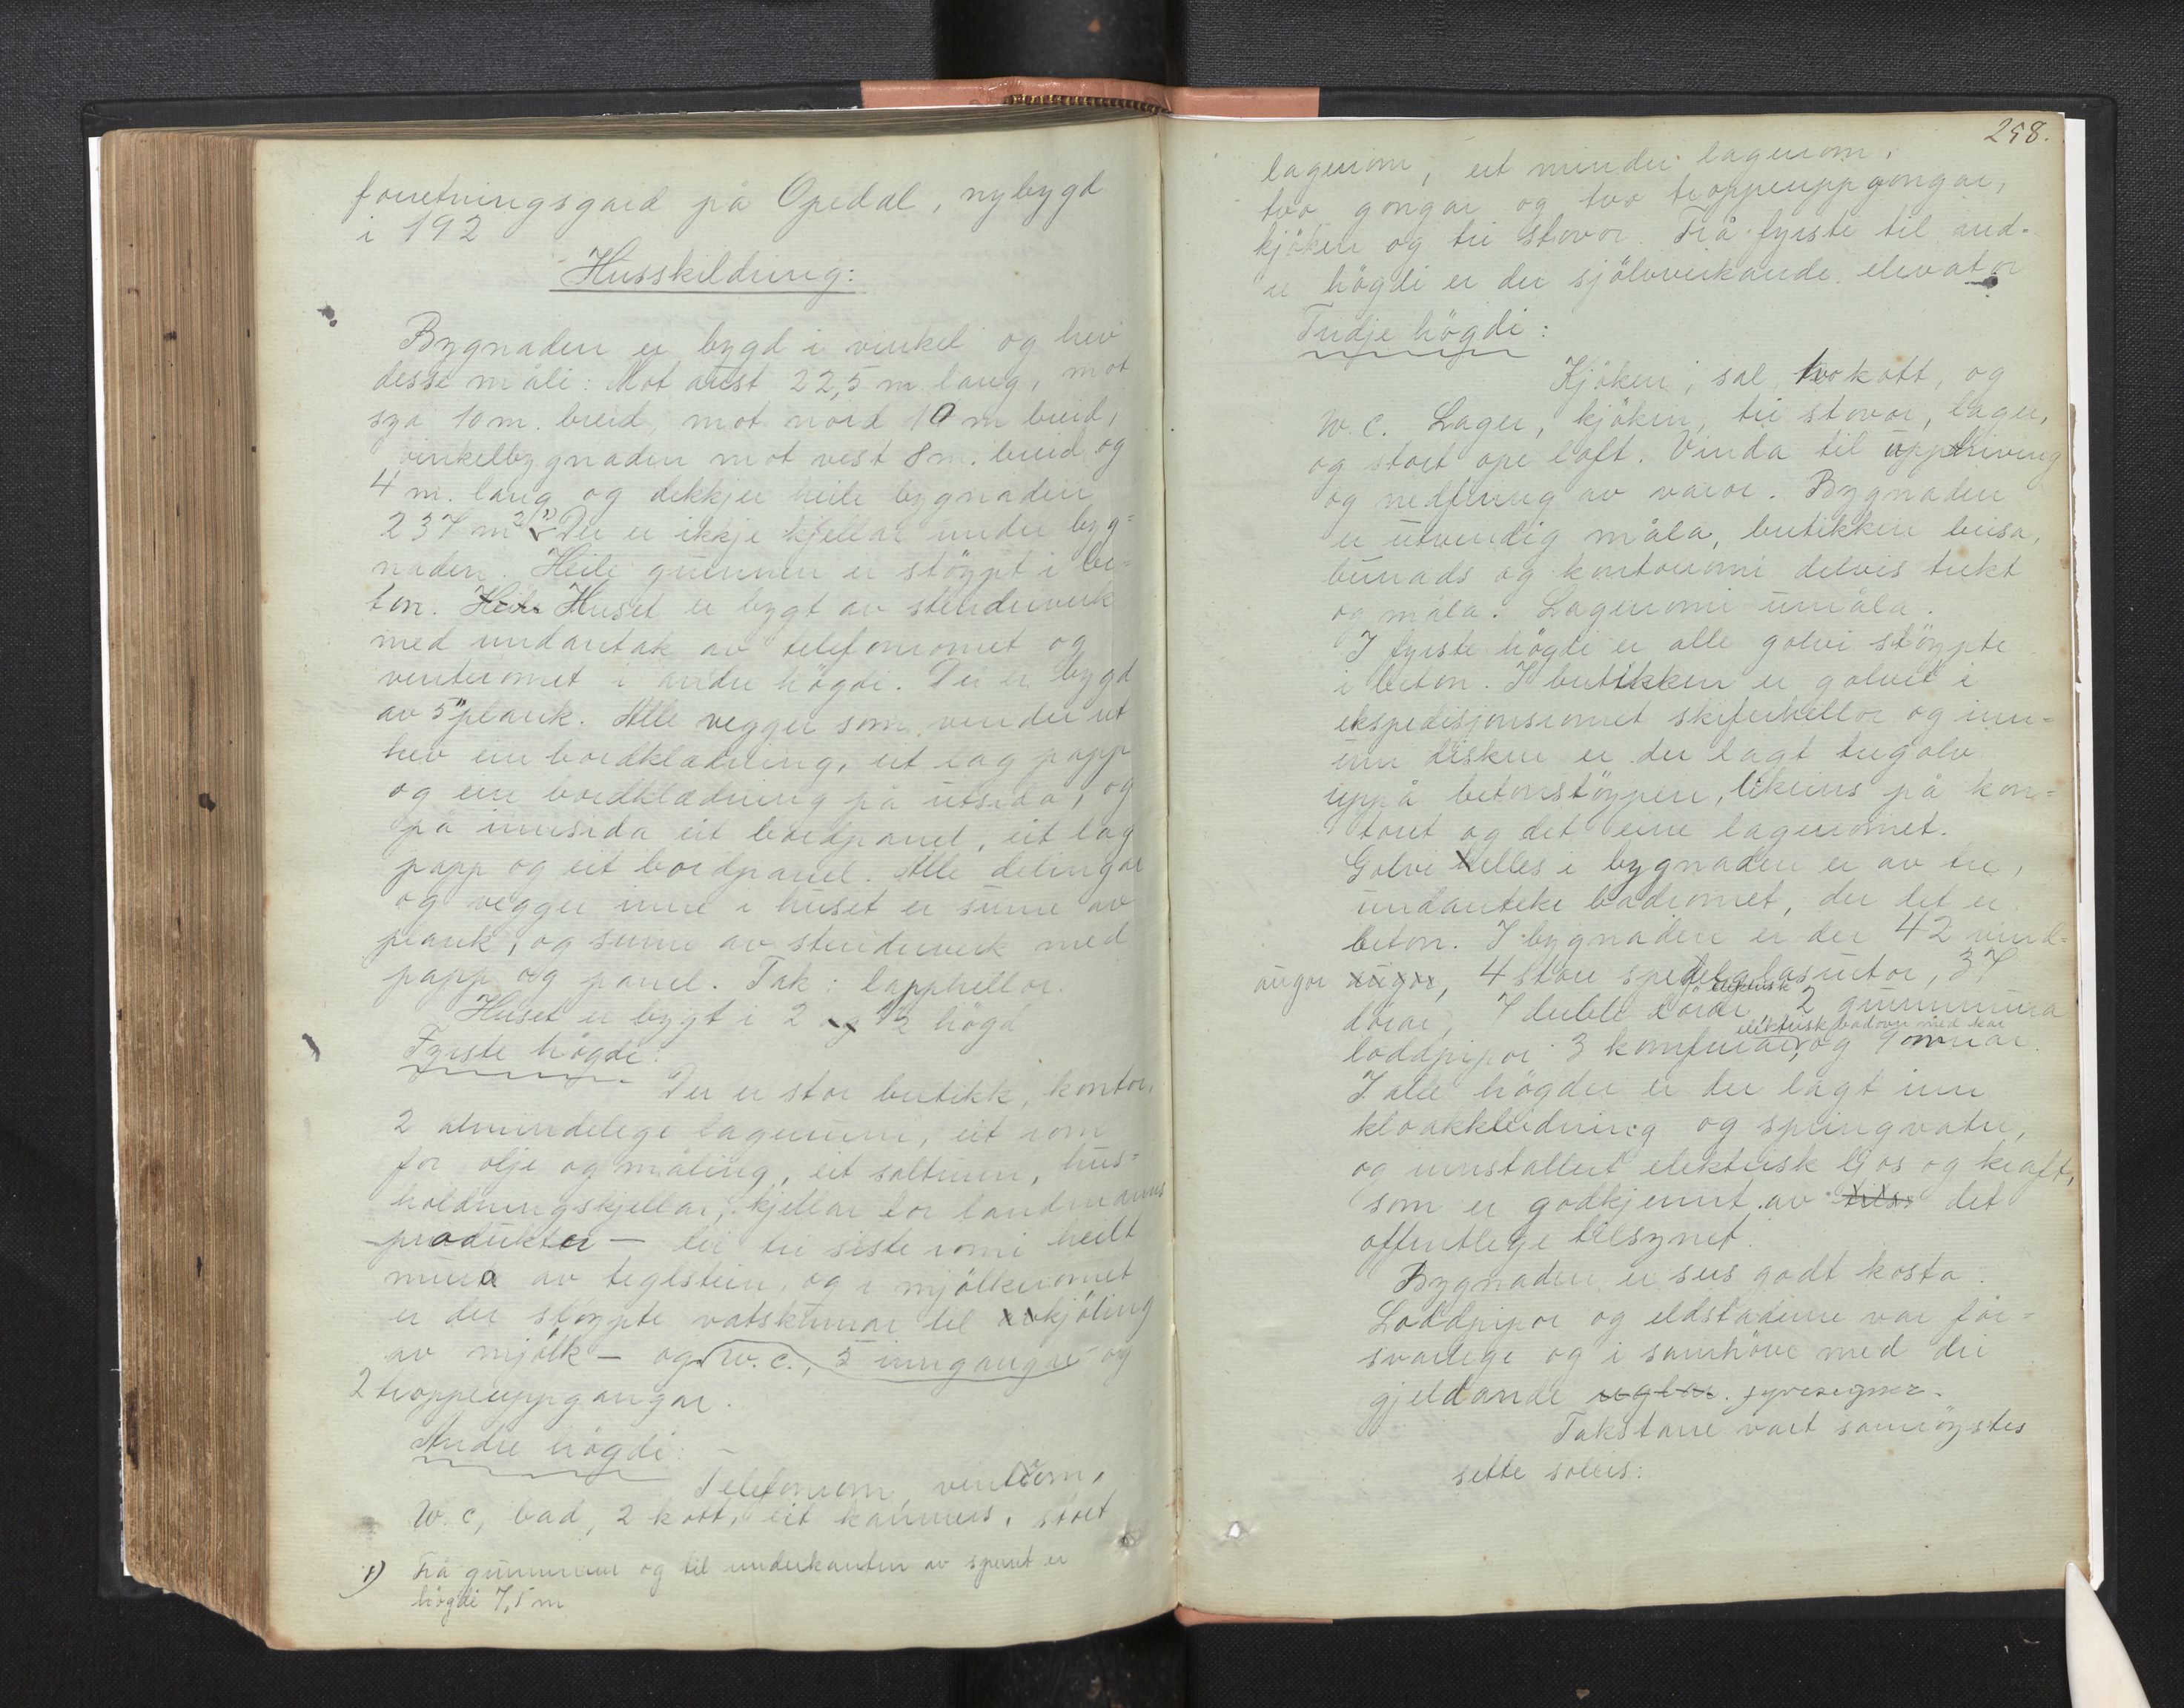 forretningsgard på Opedal, nybygd
i 192
Husskildring:
Bygnaden er bygd i vinkel og hev
desse måli: Mot aust 22,5 m lang, mot
syd 10 m. breid, mot nord 10 m breid,
vinkelbygnaden mot vest 8 m. breid og
4 m. lang og dekkjer heile bygnaden
237 m² 1) Der er ikkje kjellar under byg=
naden. Heile grunnen er støypt i be=
ton. Heile Huset er bygt av stenderverk
med undantak av telefonromet og
venteromet i andre högdi. Der er bygd
av 5" plank. Alle vegger som vender ut
hev ein bordklædning, eit lag papp
og ein bordklædning på utsida, og
på innsida eit bordpanel, eit lag
papp og eit bordpanel. Alle delingar
og vegger inne i huset er sume av
plank, og sume av stenderverk med
papp og panel. Tak: lapphellor.
Huset er bygt i 2 og 1/2 högd
Fyrste högdi:
Der er stor butikk, kontor,
2 almindelege lagerrum, eit rom
for olje og måling, eit saltrum, hus=
holdningskjellar, kjellar for landmanns
produkter – dei tri siste romi heilt
mura av teglstein, og i mjölkeromet
er der støypte vatskummar til avkjöling
av mjölk – og w.c., 5 inngangar og
2 troppeuppgangar.
Andre högdi:
Telefonrom, venterom,
W.c, bad, 2 kott, eit kammers, stort
1) Frå grunnmur og til underkanten av sperret er
högdi 7,5 m
258.
lagerrom, eit mindre lagerrom,
tvo gongar og tvo troppeuppgongar,
kjöken og tri stovor. Frå fyrste til and-
re högdi er der sjölvverkande elevator
Tridje högdi:
Kjöken, sal, tvo kott, og
W.c. Lager, kjöken, tri stovor, lager,
og stort ope loft. Vinda til uppdriving
og nedfiring av varor. Bygnaden
er utvendig måla, butikken beisa,
bunads og kontorromi delvis trekt
og måla. Lagerromi umåla.
I fyrste högdi er alle golvi støypte
i beton. I butikken er golvet i
ekspedisjonsromet skiferhellor og inn=
um disken er der lagt tregolv
uppå betonstøypen, likeins på kon=
toret og det eine lagerromet.
Golvi elles i bygnaden er av tre,
undanteke badromet, der det er
beton. I bygnaden er der 42 vind=
augor augor, 4 store speilglasrutor, 37
dørar, 7 duble dørar, 2 grunnmura
elektrisk
loddpipor 3 komfurar, og 9 omnar.
elektrisk badovn med kar
I alle högder er der lagt inn
kloakkleidning og springvatn,
og innstallert elektrisk ljos og kraft,
som er godkjennt av tils. det
offentlege tilsynet.
Bygnaden er sers godt kosta.
Loddpipor og eldstadene var for=
svarlege og i samhöve med dei
gjeldande reglar.
Takstane vart samröystes
sette soleis: